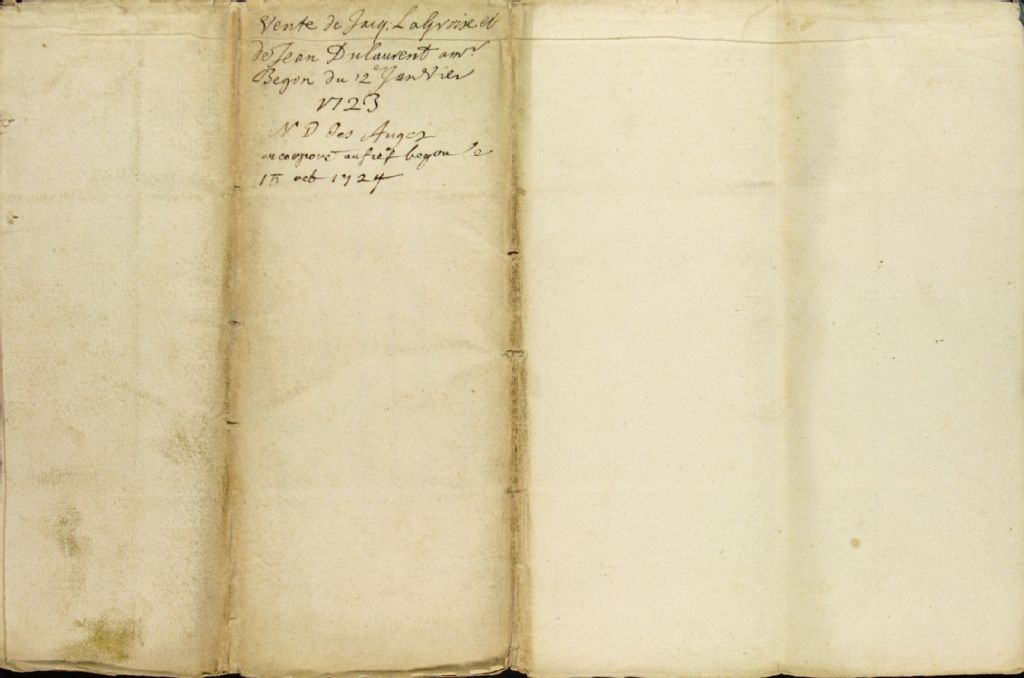 Vente de Jacq. LaGroixe et
de Jean Dulaurent a mr
Begon du 12e Janvier
1723
N D des Anges
incorporé au fief begon le
18 oct 1724